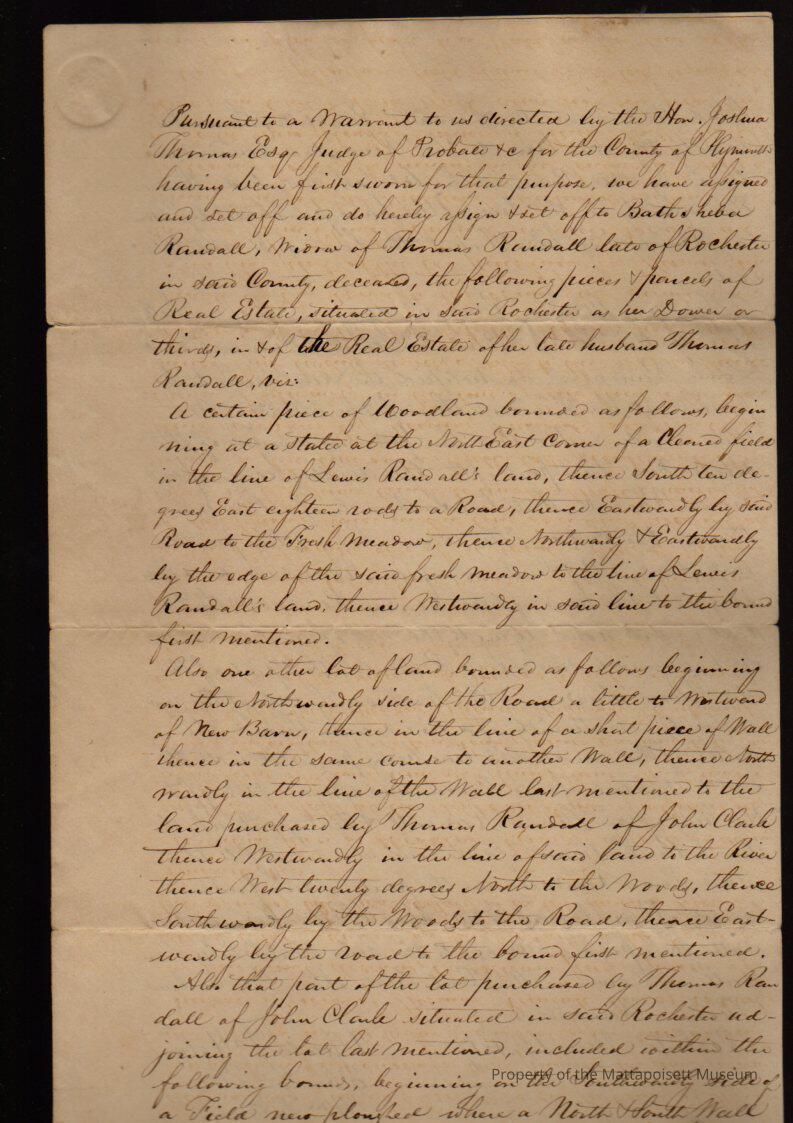 Pursuant to a Warrant to us directed by the Hon. Joshua
Thomas Esqr Judge of Probate &c for the County of Plymouth
having been first sworn for that purpose, we have assigned
and set off and do hereby assign & set off to Bathsheba
Randall, Widow of Thomas Randall late of Rochester
in said County, deceased, the following pieces & parcels of
Real Estate, situated in said Rochester as her Dower or
thirds, in & of the Real Estate of her late husband Thomas
Randall, viz:
A certain piece of Woodland bounded as follows, begin
ning at a stake at the North East Corner of a Cleared field
in the line of Lewis Randall's land, thence South ten de-
grees East eighteen rods to a Road, thence Eastwardly by said
Road to the Fresh Meadow, thence Northwardly & Eastwardly
by the edge of the said fresh meadow to the line of Lewis
Randall's land, thence Westwardly in said line to the bound
first mentioned.
Also one other lot of land bounded as follows beginning
on the Northwardly side of the Road a little to Westward
of New Barn, thence in the line of a short piece of Wall
thence in the same course to another Wall, thence North
wardly in the line of the Wall last mentioned to the
land purchased by Thomas Randall of John Clark
thence Westwardly in the line of said land to the River
thence West twenty degrees North to the Woods, thence
Southwardly by the Woods to the Road, thence East-
wardly by the road to the bound first mentioned.
Also that part of the lot purchased by Thomas Ran
dall of John Clark situated in said Rochester ad-
joining the lot last mentioned, included within the
following bounds, beginning on the Southwardly side of
a Field new ploughed where a North & South Wall
Property of the Mattapoisett Museum